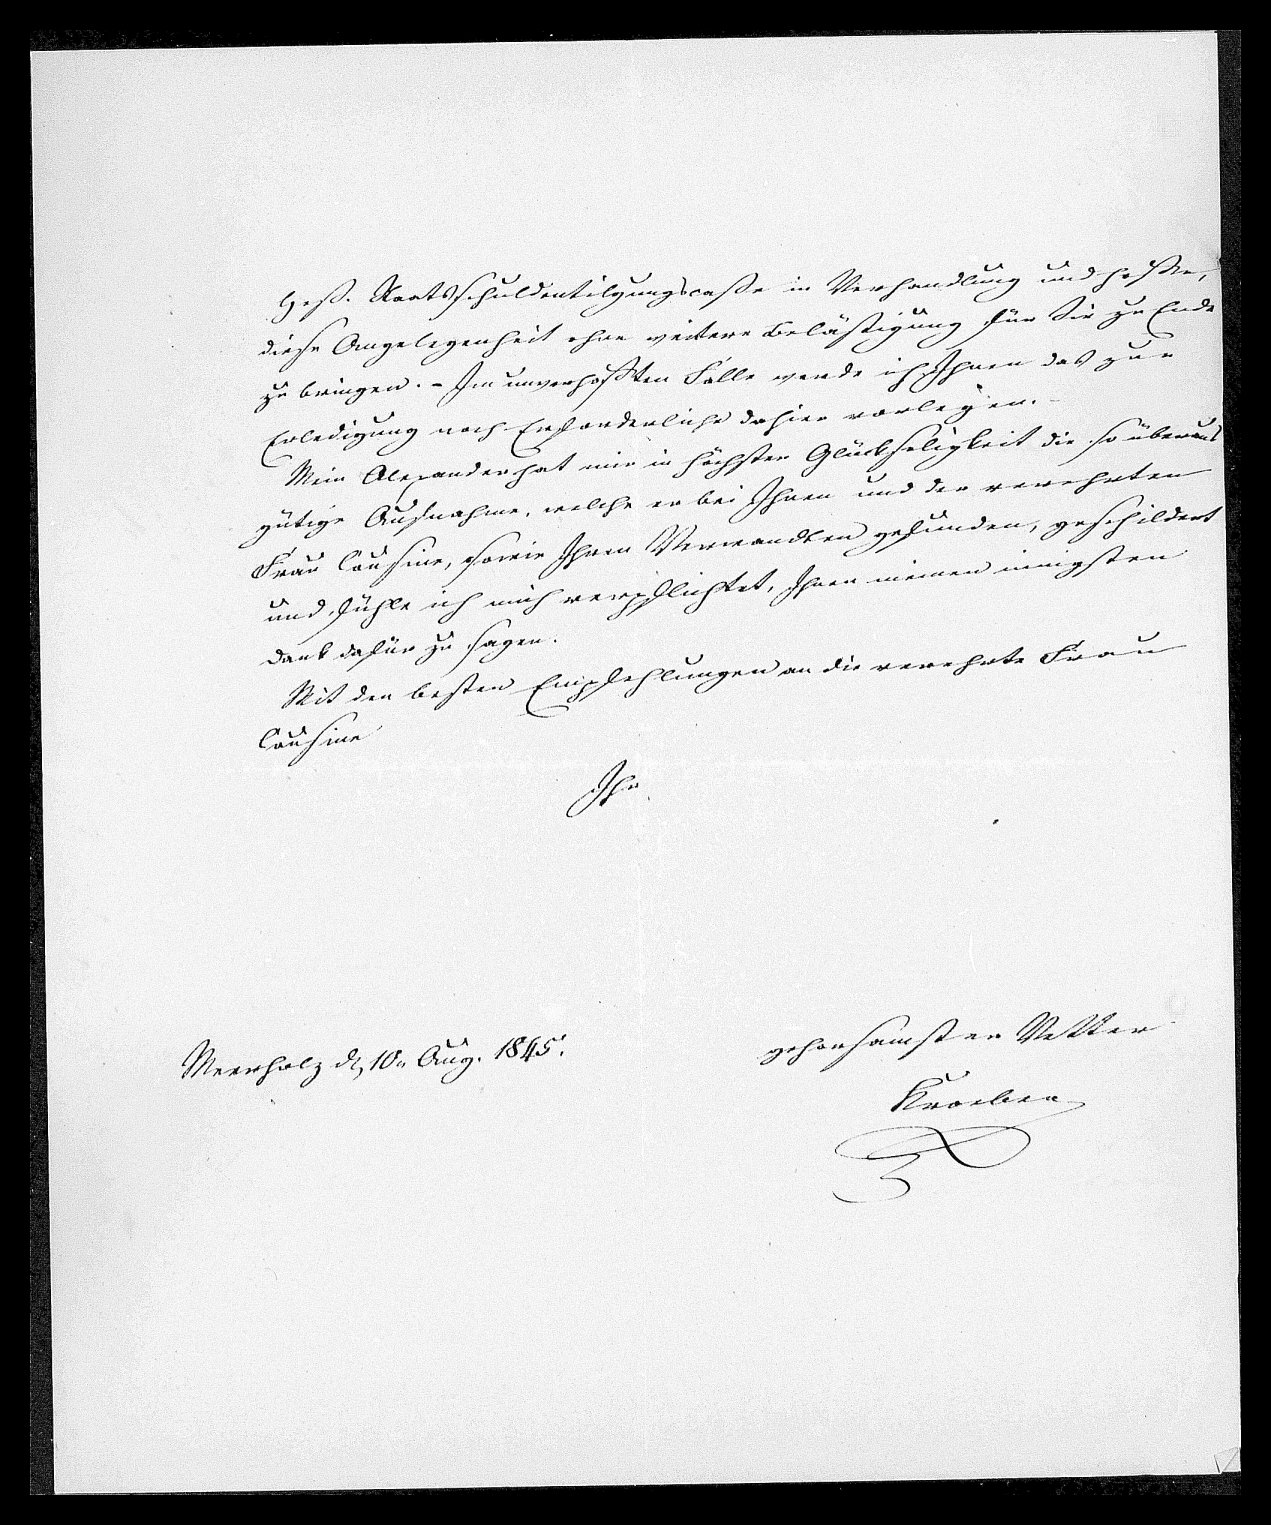 Hess. Staatsschuldentilgungscasse in Verhandlung und hoffe,
diese Angelegenheit ohne weitere Belästigung für Sie zu Ende
zu bringen. – Im unverhofften Falle werde ich Ihnen das zur
Erledigung noch Erforderliche dahier vorlegen. –
Mein Alexander hat mir in höchster Glückseligkeit die so überaus
gütige Aufnahme, welche er bei Ihnen und der verehrten
Frau Cousine, sowie Ihren Verwandten gefunden, geschildert
und fühle ich mich verpflichtet, Ihnen meinen innigsten
Dank dafür zu sagen.
Mit den besten Empfehlungen an die verehrte Frau
Cousine
Ihr
gehorsamster Vetter
Meerholz d. 10n Aug. 1845.
Kroeber